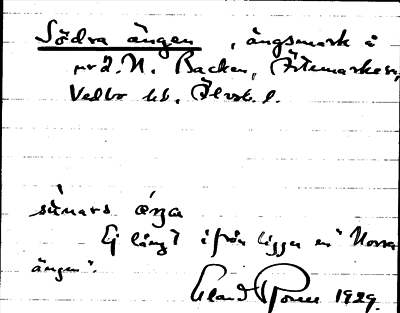 Södra ängen, ängsmark i
nr 2. N. Backen, Ärtemarks sn,
Vedbo hd. Älvsb. l.
sùnars ǽŋa
Ej långt ifrån ligger en "Norra
ängen".
Erland 1929.